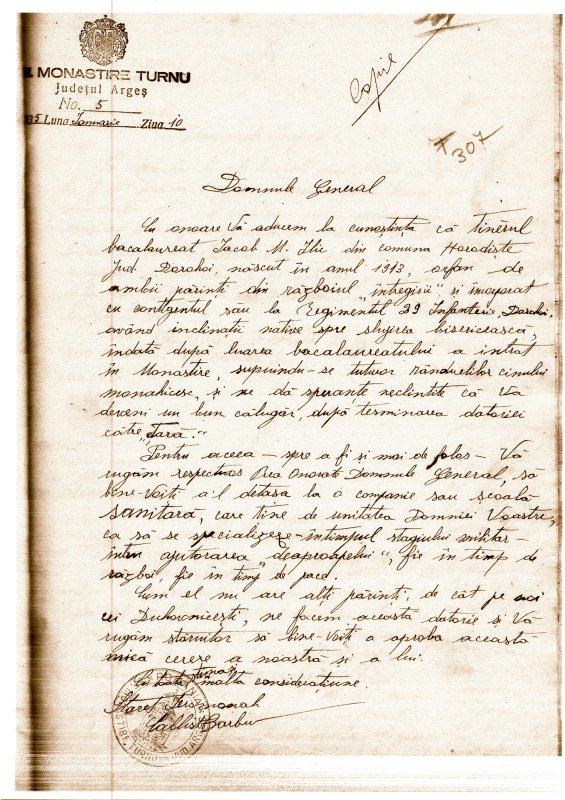 MONASTIRE TURNU
Județul Argeș
No. 5
35 Luna Ianuarie Ziua 10
Copie
307
Domnule General
Cu onoare Vă aducem la cunoștința că tînĕrul
bacalaureat Iacob M. Ilie din comuna Horodiște
Jud. Dorohoi, născut în anul 1913, orfan de
ambii părinți din războiul "întregirii" și încorporat
cu contigentul său la Regimentul 29 Infanterie, Dorohoi,
având inclinații native spre slujirea bisericească,
îndată după luarea bacalaureatului a intrat
în Monastire, supuindu-se tutuor rânduelilor cinului
monahicesc, și ne dă speranțe neclintite că va
deveni un bun călugăr, după terminarea datoriei
către „Țară."
Pentru aceea - spre a fi și mai de folos - Vă
rugăm respectuos Prea Onorate Domnule General, să
bine-voiți a'l detașa la o companie sau școală
sanitară, care ține de unitatea Domniei Voastre,
ca să se specializeze - întimpul stagiului militar -
întru ajutorarea "deaproapelui", fie în timp de
război, fie în timp de pace.
Cum el nu are alți părinți, de cât pe noi
cei Duhovnicești, ne facem această datorie și Vă
rugăm stăruitor să bine-voiți a aproba această
mică cerere a noastră și a lui.
Cu toată înalta considerațiune.
Stareț Ieromonah
Calist Barbu